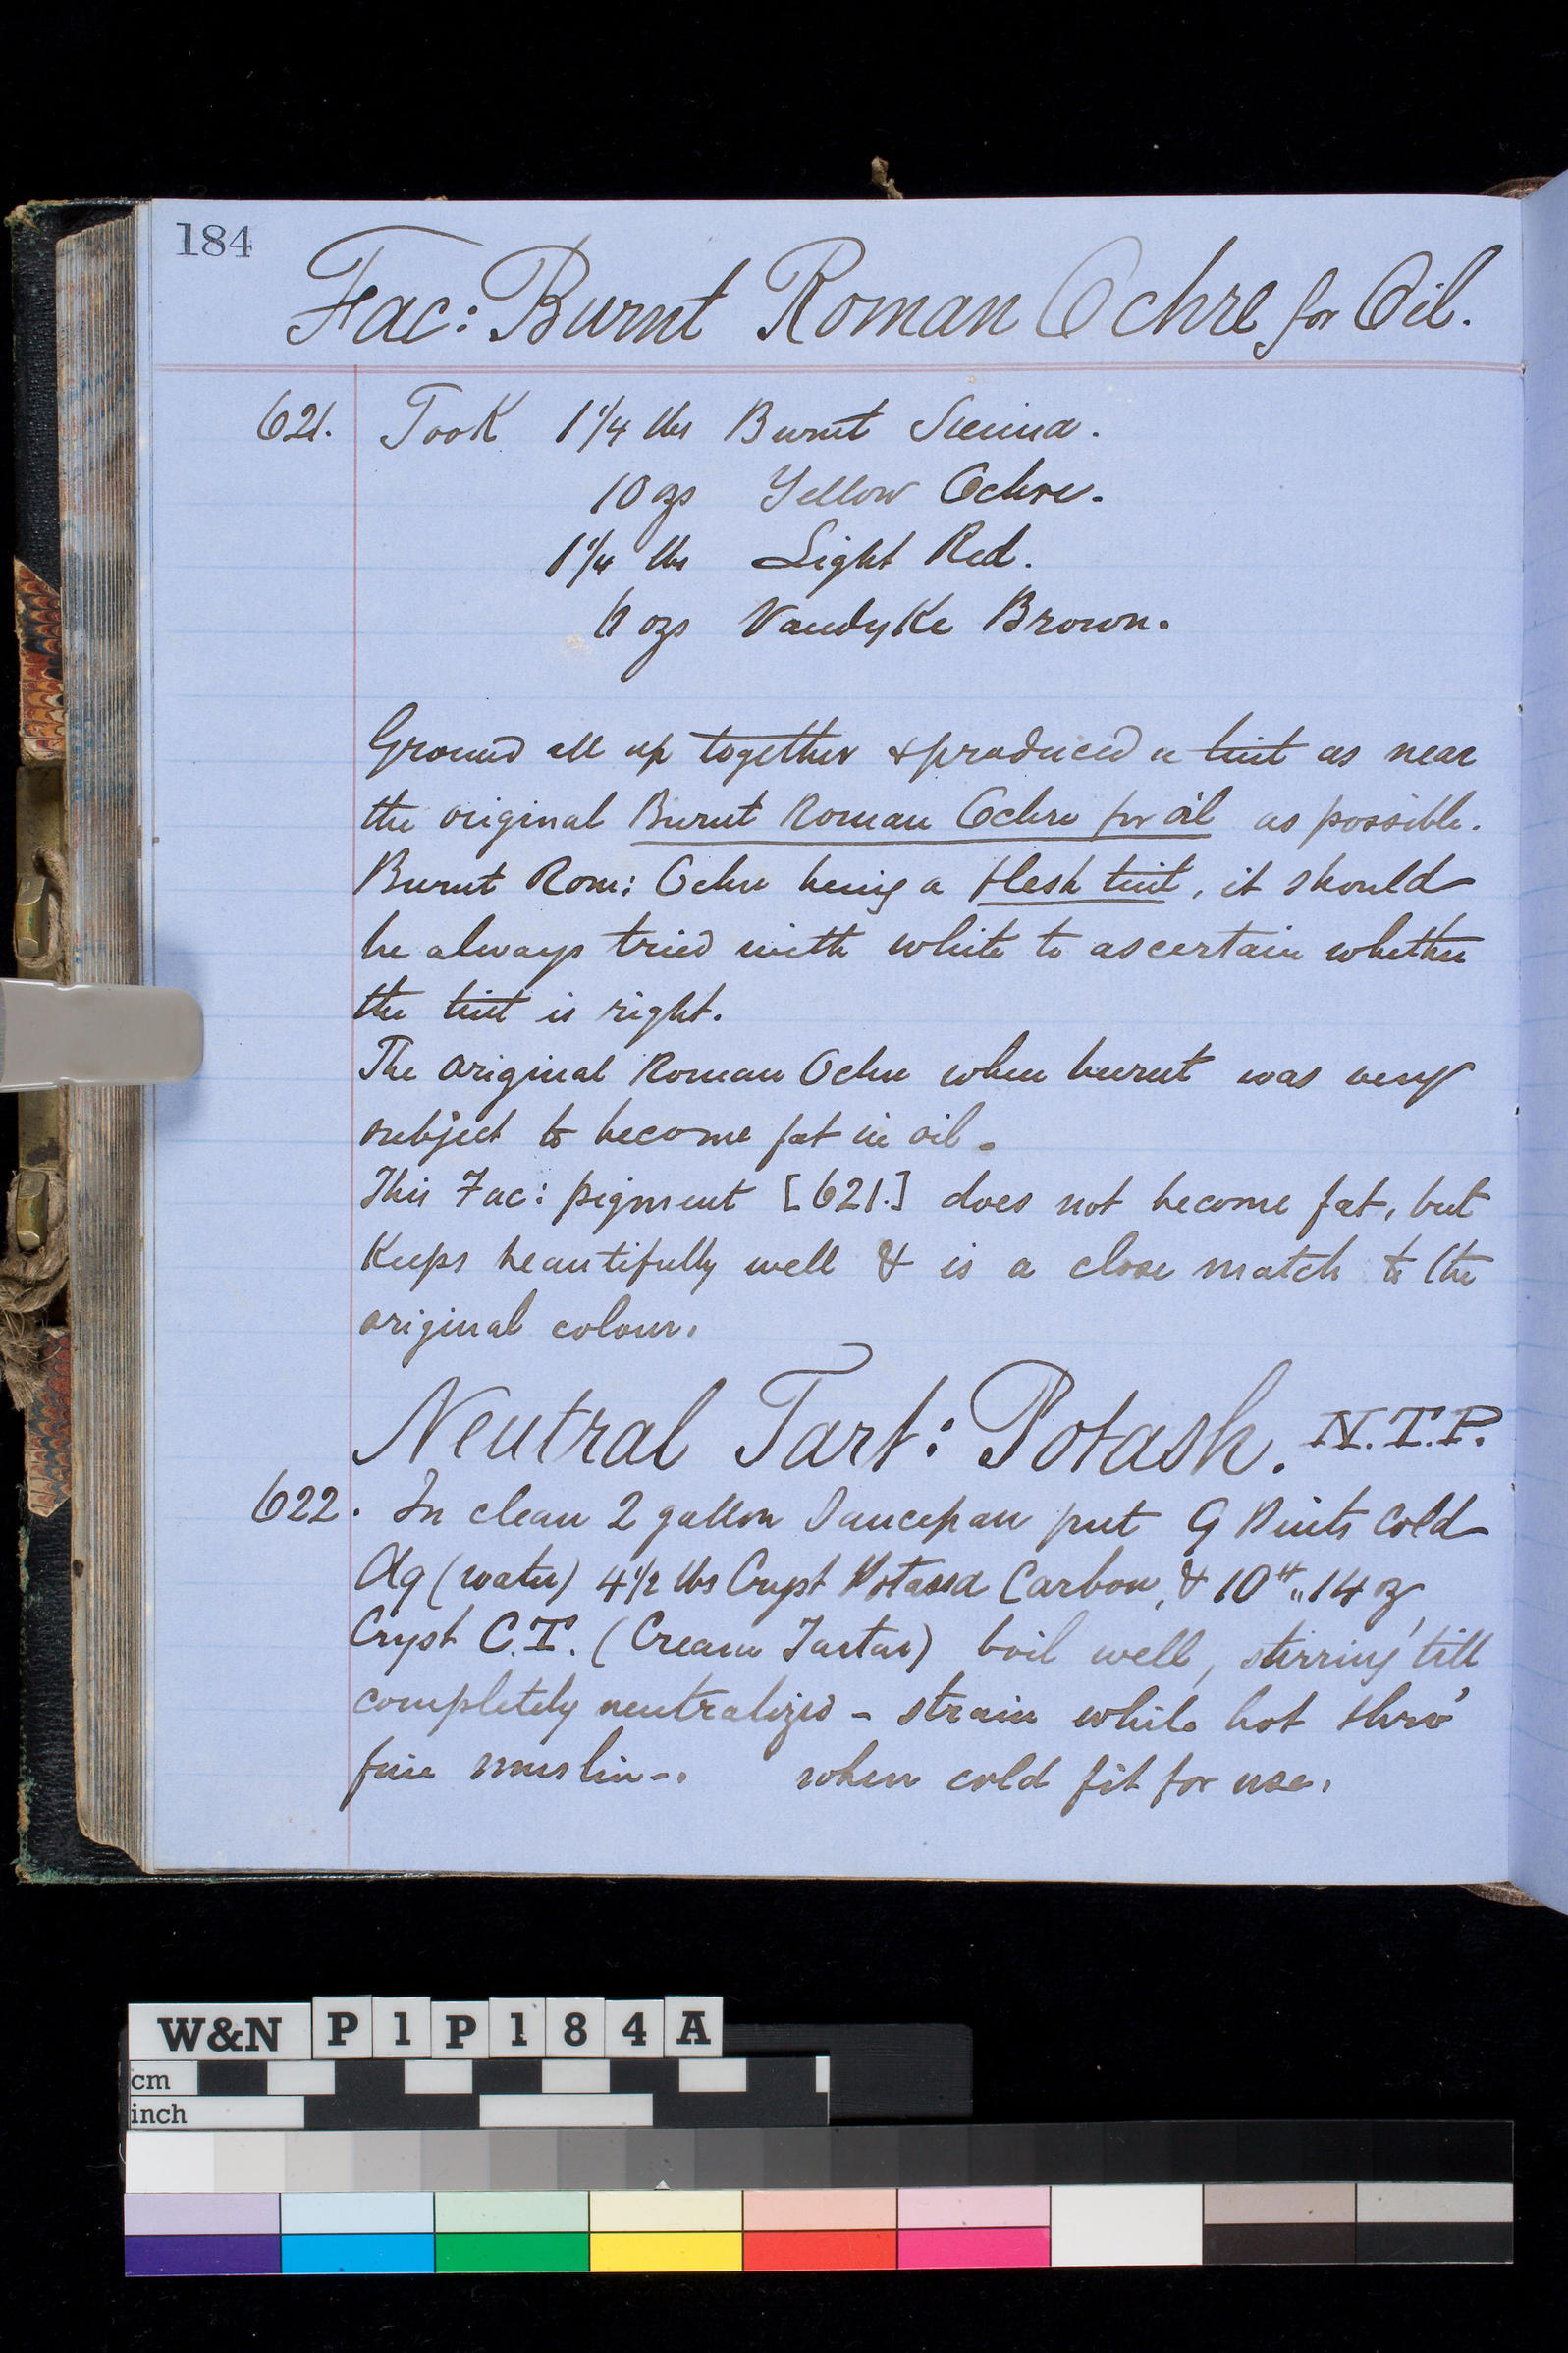 184
Fac: Burnt Roman Ochre for Oil.
621. Took 1 1/4 lbs Burnt Sienna.
10 ozs Yellow Ochre.
1 1/4 lbs Light Red.
6 ozs Vandyke Brown.
Ground all up together & produced a tint as near
the original Burnt Roman Ochre for oil as possible.
Burnt Rom: Ochre being a flesh tint, it should
be always tried with white to ascertain whether
the tint is right.
The original Roman Ochre when burnt was very
subject to become fat in oil.
This Fac: pigment [621.] does not become fat, but
Keeps beautifully well & is a close match to the
original colour.
Neutral Tart: Potash. N.T.P.
622. In clean 2 gallon Saucepan put 9 Pints Cold
Aq (water) 4 1/2 lbs Cryst Potassa Carbon, & 10 " 14 oz
Cryst C.T. (Cream Tartar) boil well, stirring till
completely neutralized - strain while hot thro'
fine muslin-. when cold fit for use.
W&N P1P184A
cm
inch